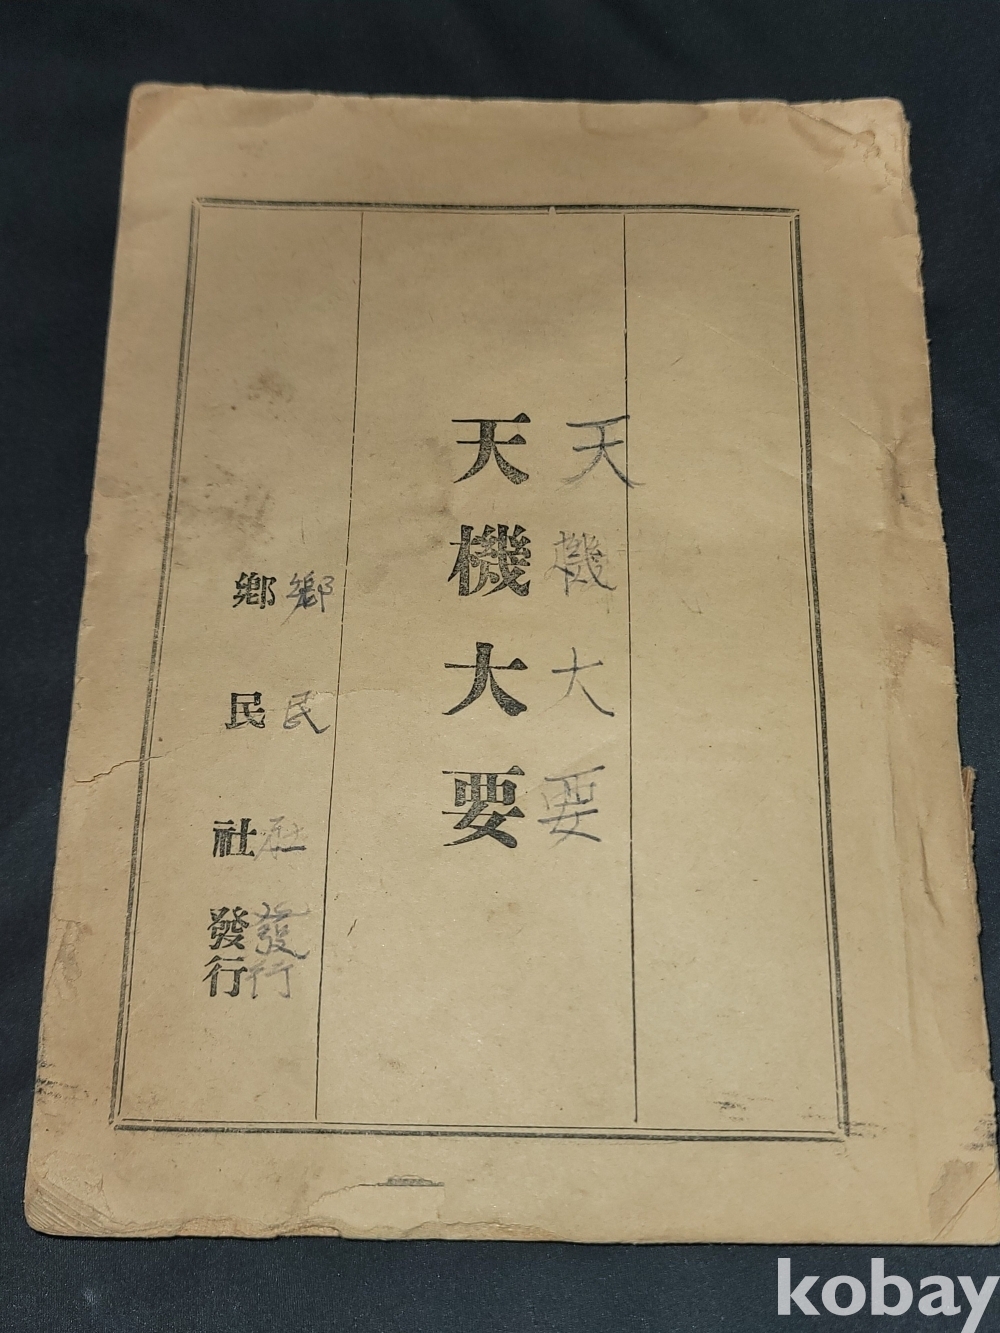 天機大要
天機大要
鄕民社發行
鄕民社發行
kobay